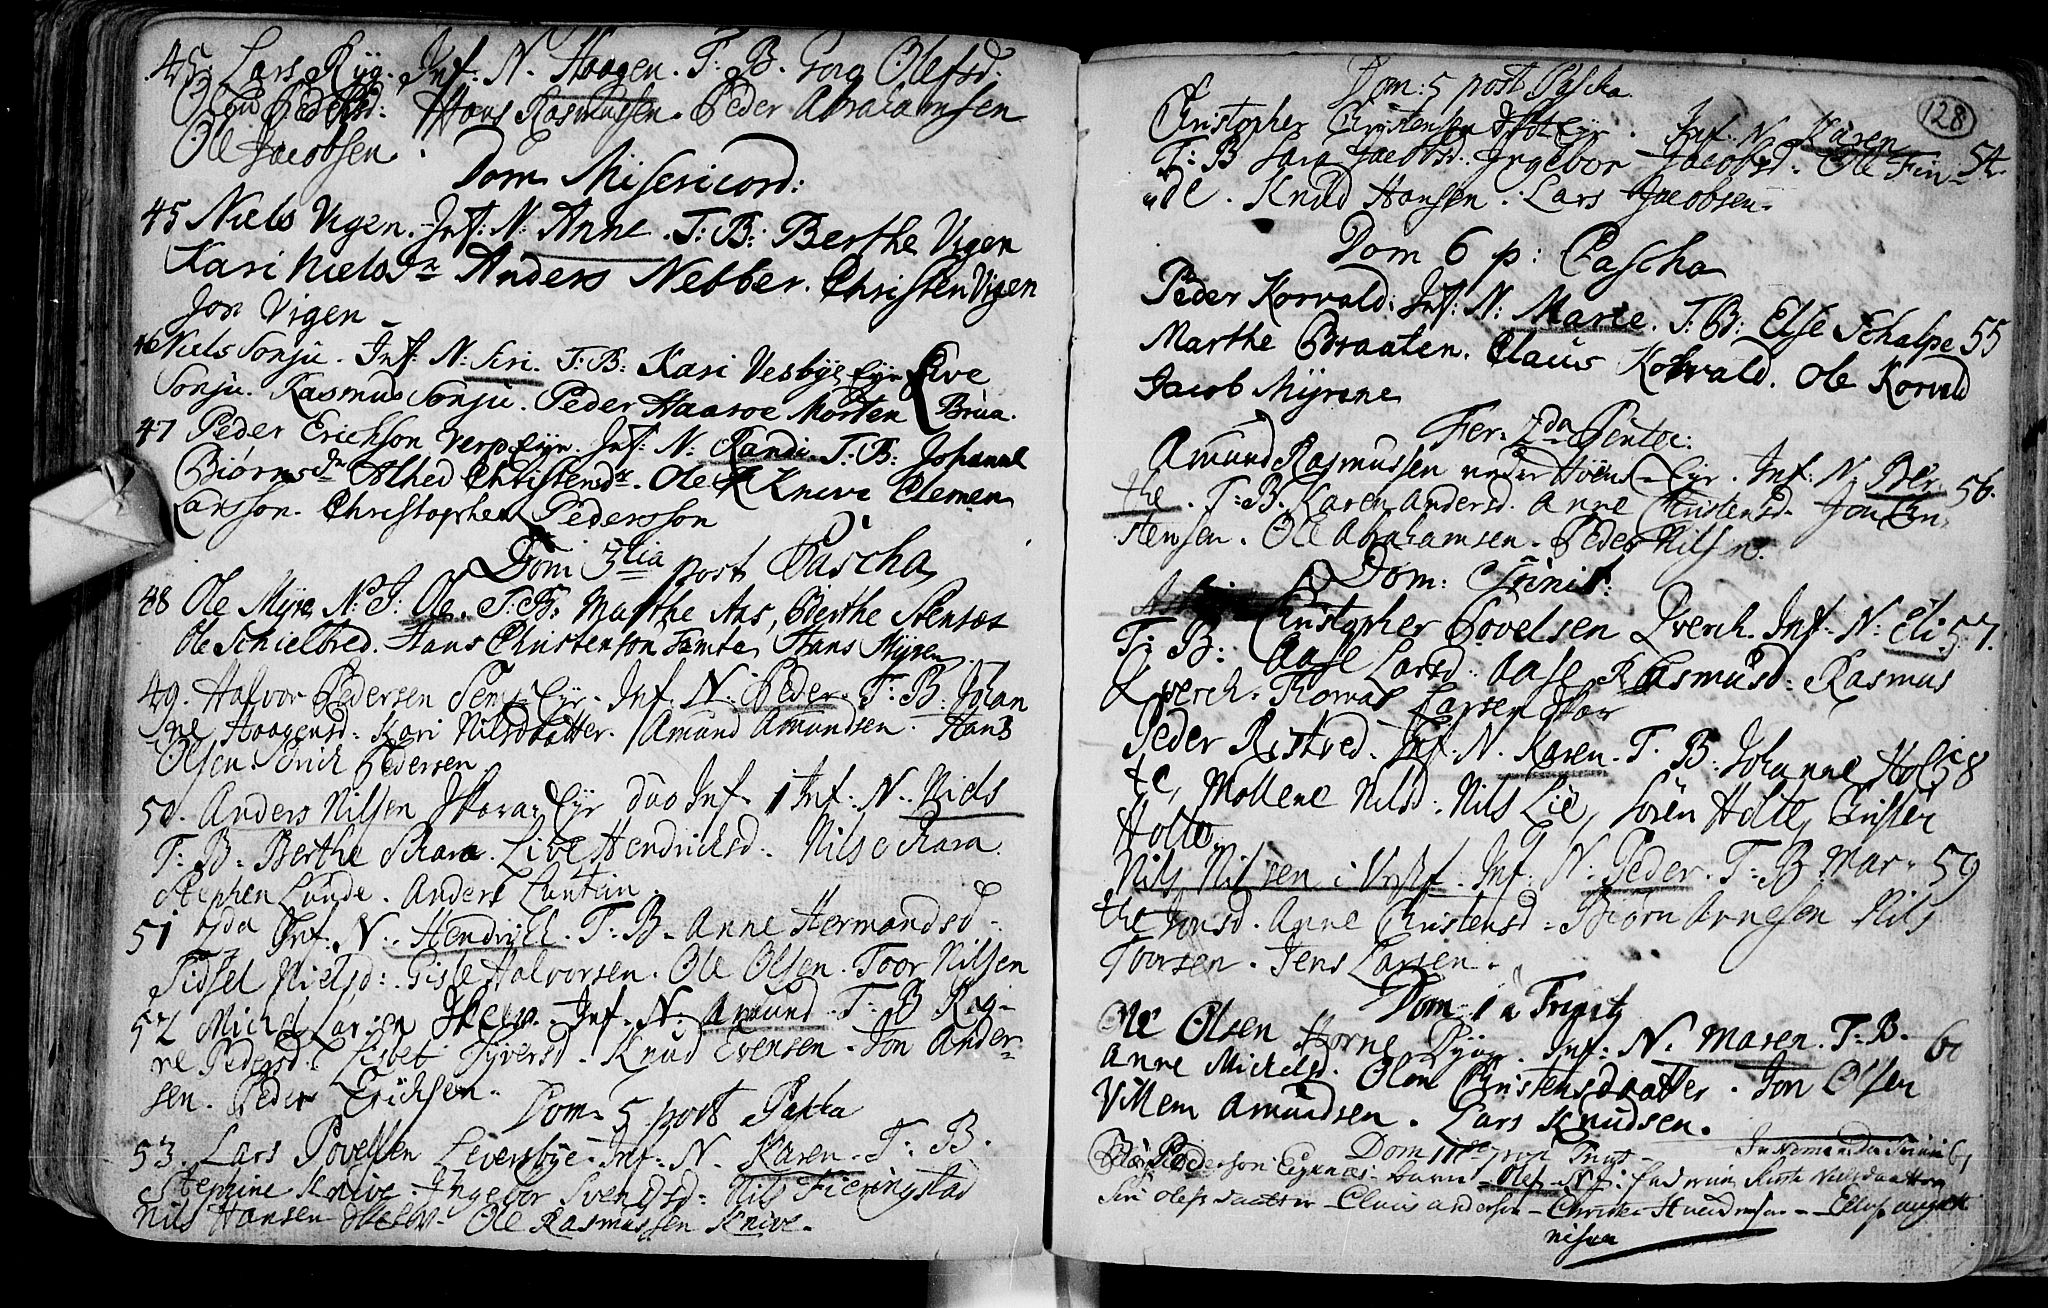 45. Lars Ryg. Inf: N. Haagen. T. B. Goro Olefsd:
Pedersd: Hans Rasmussen. Peder Abrahamsen
Ole Jacobsen.
Dom. Misericord:
45 Niels Vigen. Inf: N: Anne. T: B: Berthe Vigen
Kari Nielsdr Anders Nebber. Christen Vigen
Jon Vigen
46 Niels Sonju. Inf: N: Siri. T: B: Kari Vesbye Eyr Live
Sonju. Rasmus Sonju. Peder Haasoe Morten Brua.
47 Peder Erickson Verp Eyr. Inf: N: Randi. T. B: Johanne
Biørnsdr Alhed Christensdr. Ole Knive Clemen
Larsson. Christopher Pedersson
Dom 3tia post Pascha
48 Ole Myre N: I: Ole. T: B: Marthe Aas, Berthe Stensæt
Ole Schielbred. Hans Christenson Tamta, Hans Myren
49. Halvor Pedersen Eyr. Inf. N: Peder. T: B. Johan
ne Haagensd: Kari Nilsdatter. Amund Amundsen. Hans
Olsen. Erich Pedersen
50. Anders Nilsen Skara Eyr duo Inf. 1 Inf: N: Niels
T: B. Berthe Schara. Live Hendrichsd. Nils Schara.
Stephen Lunde. Anders Luntun.
51 2da Inf. N: Hendrich. T: B. Anne Hermandsd.
Sidsel Nielsd: Gisle Halvorsen. Ole Olsen. Toor Nilsen
52 Michel Larsen Skelv. Inf. N. Amund. T: B Reg-
ne Pedersd: Lisbet Syversd. Knud Evensen. Jon Ander-
sen. Peder Erichsen.
Dom. 5 post Pasca
53. Lars Povelsen Leversbye. Inf. N. Karen. T. B.
Stephine Knive. Ingebor Svendsd: Nils Fieringstad
Nils Hansen Ole Rasmussen Knive.
128
Dom: 5 post Pascha.
Christopher Christensen Eyr. Inf. N. Karen 54.
T: B Sara Jacobsd. Ingebor Jacobsd. Ole Fin-
de. Knud Hansen. Lars Jacobsen.
Dom 6 p: Pascha
Peder Korvald. Inf: N: Marte. T: B: Else Schalpe 55
Marthe Braaten. Claus Korvald. Ole Korvald
Jacob Myrene
Fer. 2da Pentec:
Amund Rasmussen under Eyr. Inf. N. Ber- 56.
the. T: B. Karen Andersd. Anne Christensd. Jon
stensen. Ole Abrahamsen. Peder Nilsen.
Dom: Trinit:
Christopher Povelsen Qverch. Inf. N: Eli 57.
T: B: Aase Larsd. Aase Rasmusd: Rasmus
Qverch. Thorval Larsen
Peder Ristved. Inf. N. Karen. T. B. Johanne Hol 58
te, Mollene Nilsd: Nils Lie, Sørën Holte, Christen
Holte.
Nils Nilsen i Inf. N: Peder. T: B Mar- 59
the Jonsd. Anne Christensd. Biørn Arnesen Nils
Toorsen. Jens Larsen.
Dom. 1 a Trinit
Ole Olsen Horne Inf: N. Maren. T: B. 60
Anne Michelsd. Olen Christensdaatter. Jon Olsen
Villem Amundsen. Lars Knudsen.
Dom post Trinit 61
Pederson Eyknæs. barn Olef
Siri olefsdaatter Claus anderson